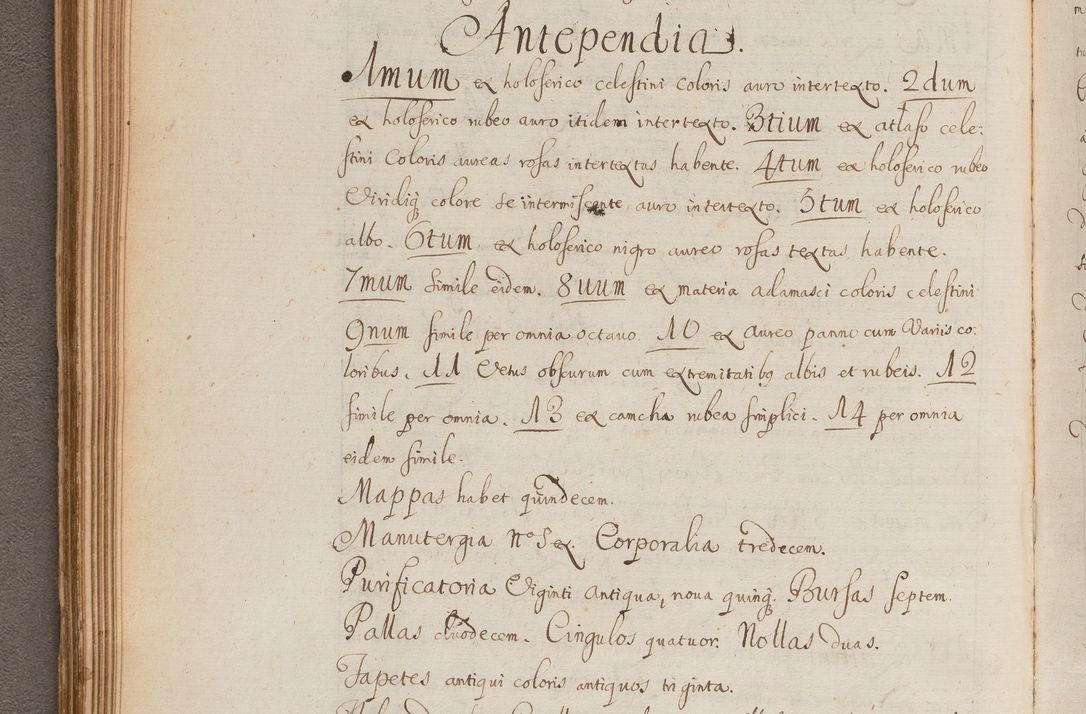 Antependia.
1mum ex holoserico celestini coloris auro intertexto. 2dum
ex holoserico rubeo auro itidem intertexto. 3tium ex atlaso cele:
stini Coloris aureas rosas intertextas habente. 4tum ex holoserico rubeo
Viridiq̃ colore se intermiscente auro intertexto. 5tum ex holoserico
albo. 6tum ex holoserico nigro aureo rosas textas habente.
7mum simile eidem. 8uum ex materia adamasci coloris celestini
9num simile per omnia octavo. 10 ex aureo panno cum Variis co:
loribus. 11 Vetus obscurum cum extremitatibꝯ albis et rubeis. 12
simile per omnia. 13 ex camcha rubea simplici. 14 per omnia
eidem simile.
Mappas habet quindecem.
Manutergia No Sex. Corporalia tredecem.
Purificatoria Viginti antiqua, nova quinq̃. Bursas septem.
Pallas duodecem. Cingulos quatuor. Nollas duas.
Tapetes antiqui coloris antiquos triginta.